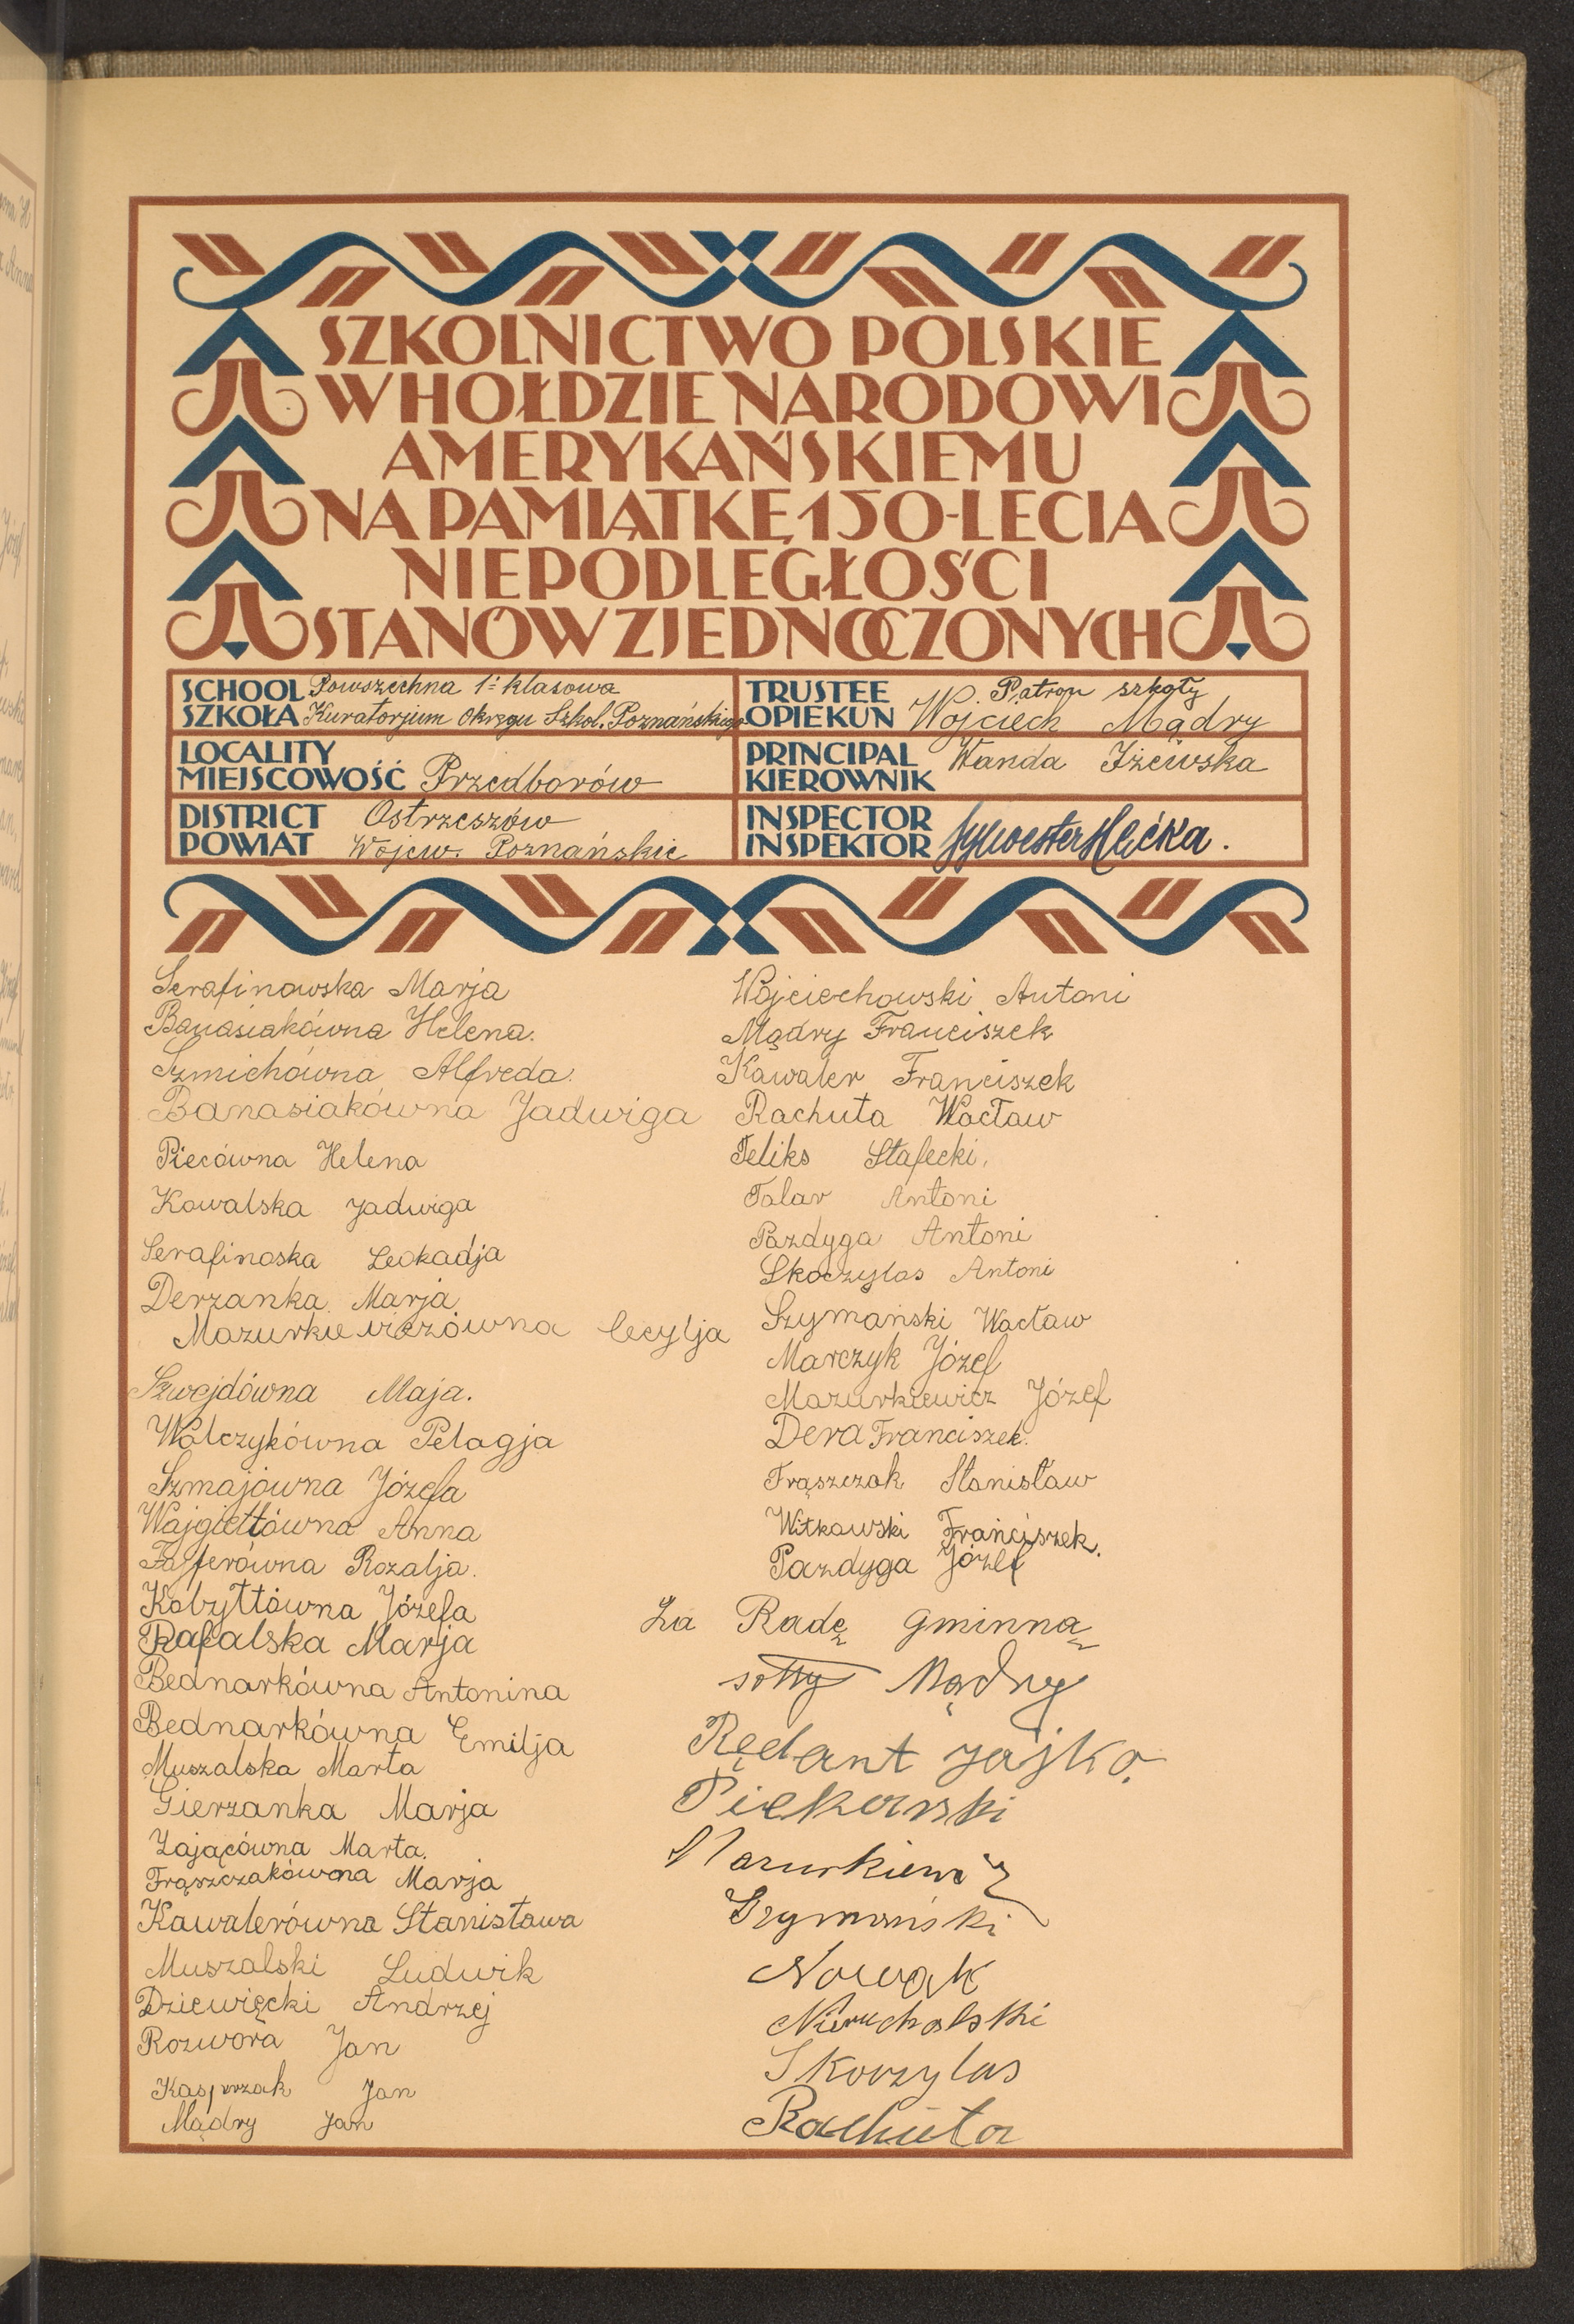 SZKOLNICTWO POLSKIE
W HOŁDZIE NARODOWI
AMERYKAŃSKIEMU
NA PAMIĄTKĘ 150-LECIA
NIEPODLEGŁOŚCI
STANÓW ZJEDNOCZONYCH
SCHOOL Powszechna 1-klasowa
SZKOŁA Kuratorjum Okręgu Szkol. Poznańskiego
TRUSTEE Patron szkoły
OPIEKUN Wojciech Mądry
LOCALITY
MIEJSCOWOŚĆ Przedborów
PRINCIPAL Wanda Iżewska
KIEROWNIK
DISTRICT Ostrzeszów
POWIAT Wojew. Poznańskie
INSPECTOR
INSPEKTOR Sylwester
Serafinowska Marja
Banasiakówna Helena.
Szmichówna Alfreda.
Banasiakówna Jadwiga
Piecówna Helena
Kowalska Jadwiga
Serafinoska Leokadja
Derzanka Marja
Mazurkiewiczówna Cecylja
Szwejdówna Maja.
Walczykówna Pelagja
Szmajówna Józefa
Wajgieltówna Anna
Fajferówna Rozalja.
Kobyłtówna Józefa
Rafalska Marja
Bednarkówna Antonina
Bednarkówna Emilja
Muszalska Marta
Gierzanka Marja
Zającówna Marta.
Frąszczakówna Marja
Kawalerówna Stanisława
Muszalski Ludwik
Dziewięcki Andrzej
Rozwora Jan
Kasprzak Jan
Mądry Jan
Wojciechowski Antoni
Mądry Franciszek
Kawaler Franciszek
Rachuta Wacław
Feliks Stafecki.
Talar Antoni
Pazdyga Antoni
Skoczylas Antoni
Szymański Wacław
Marczyk Józef
Mazurkiewicz Józef
Dera Franciszek.
Frąszczak Stanisław
Witkowski Franciszek.
Pazdyga Józef
Za Radę gminną
Mądry
Rędant Jajko.
Piekarski
Mazurkiewicz
Szymański
Nowak
Nieruchalski
Skoczylas
Rachuta